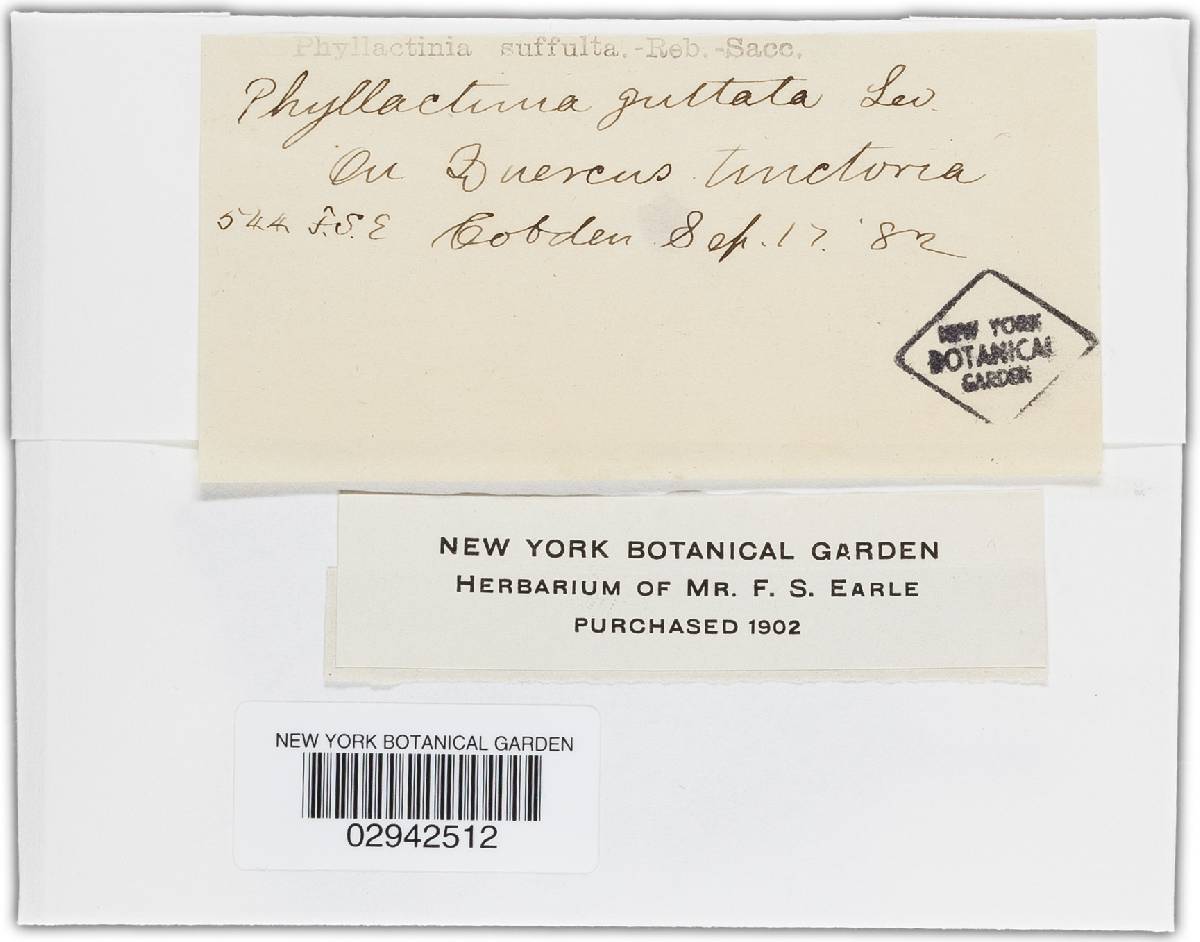 Phyllactinia suffulta.-Reb.-Sacc.
Phyllactinia guttata Lev.
On Quercus tinctoria
544 F.S.E Cobden Sep. 17. '82
NEW YORK
BOTANICAL
GARDEN
NEW YORK BOTANICAL GARDEN
HERBARIUM OF MR. F. S. EARLE
PURCHASED 1902
NEW YORK BOTANICAL GARDEN
02942512